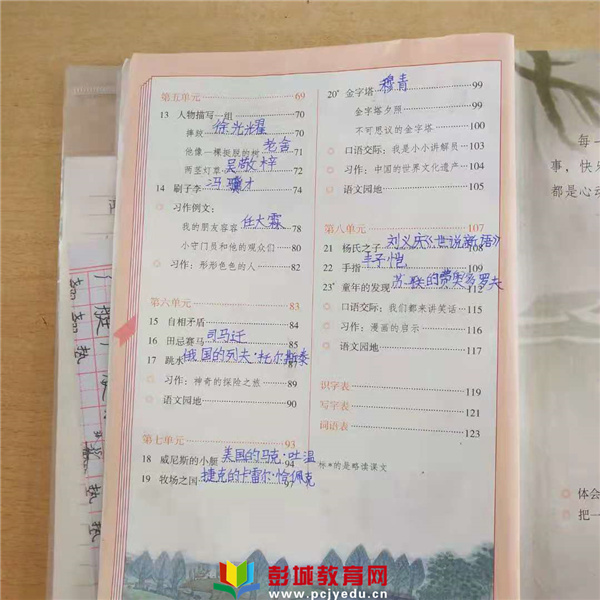 第五单元 69
13 人物描写一组 70
摔跤 徐光耀 70
他像一棵挺脱的树 老舍 71
两茎灯草 吴敬梓 72
14 刷子李 冯骥才 74
习作例文:
我的朋友容容 任大霖 78
小守门员和他的观众们 80
习作:形形色色的人 82
第六单元 83
15 自相矛盾 84
16 田忌赛马 司马迁 85
17 跳水 俄国的列夫·托尔斯泰 87
习作:神奇的探险之旅 89
语文园地 90
第七单元 93
18 威尼斯的小艇 美国的马克·吐温 94
19 牧场之国 捷克的卡雷尔·恰佩克 97
20* 金字塔 穆青 99
金字塔夕照 99
不可思议的金字塔 100
口语交际:我是小小讲解员 103
习作:中国的世界文化遗产 104
语文园地 105
第八单元 107
21 杨氏之子 刘义庆《世说新语》 108
22 手指 丰子恺 109
23* 童年的发现 苏联的费奥多罗夫 112
口语交际:我们都来讲笑话 115
习作:漫画的启示 116
语文园地 117
识字表 119
写字表 121
词语表 123
标*的是略读课文
每一
事,快乐
都是心动
体会
把一
彭城教育网
www.pcjyedu.cn